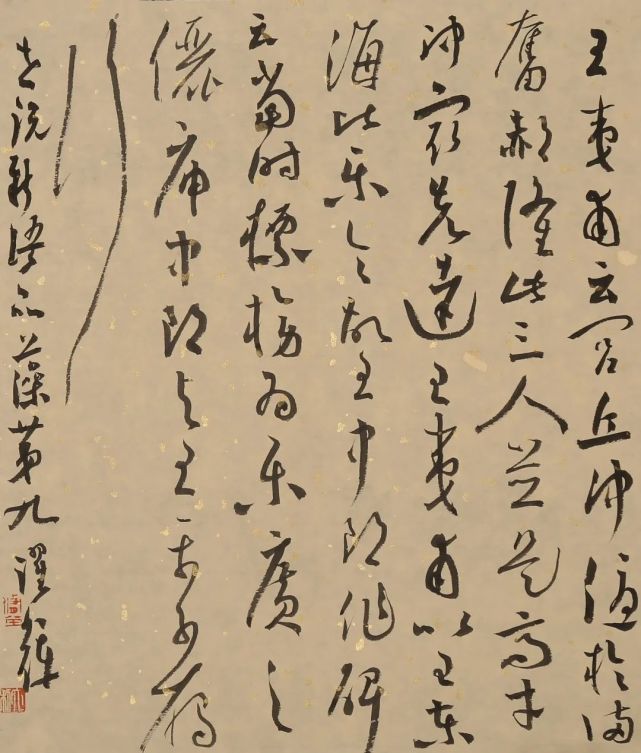 王夷甫云閭丘沖優於滿
奮郝隆此三人並是高才
沖最先達王夷甫以王東
海比樂令故王中郎作碑
云當時標榜為樂廣之
儷庾中郎與王平子鴈
行
世說新語品藻第九